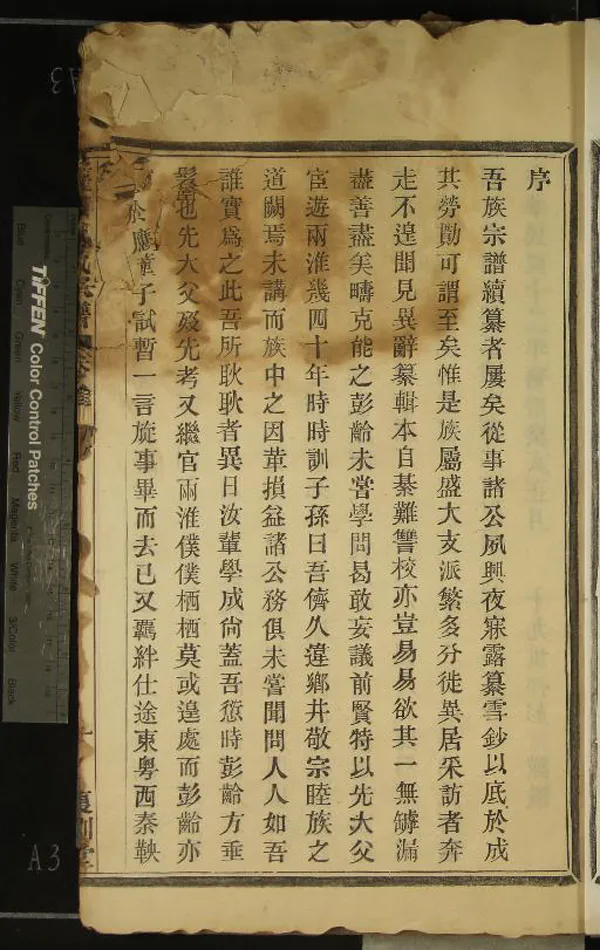 序
吾族宗譜續纂者屢矣從事諸公夙興夜寐露纂雪鈔以底於成
其勞勩可謂至矣惟是族屬盛大支派繁多分徙異居采訪者奔
走不遑聞見異辭纂輯本自綦難讐校亦豈易易欲其一無罅漏
盡善盡美疇克能之彭齡未嘗學問曷敢妄議前賢特以先大父
宦遊兩淮幾四十年時時訓子孫曰吾儕久違鄉井敬宗睦族之
道闕焉未講而族中之因革損益諸公務俱未嘗聞問人人如吾
誰實爲之此吾所耿耿者異日汝輩學成尙蓋吾愆時彭齡方垂
髫也先大父歿先考又繼官兩淮僕僕栖栖莫或遑處而彭齡亦
於應童子試暫一言旋事畢而去已又羈絆仕途東粵西秦鞅
氏宗譜
TIFFEN Color Control Patches
Blue
Cyan
Green
Yellow
Red
Magenta
White
3/Color
Black
A3
A3